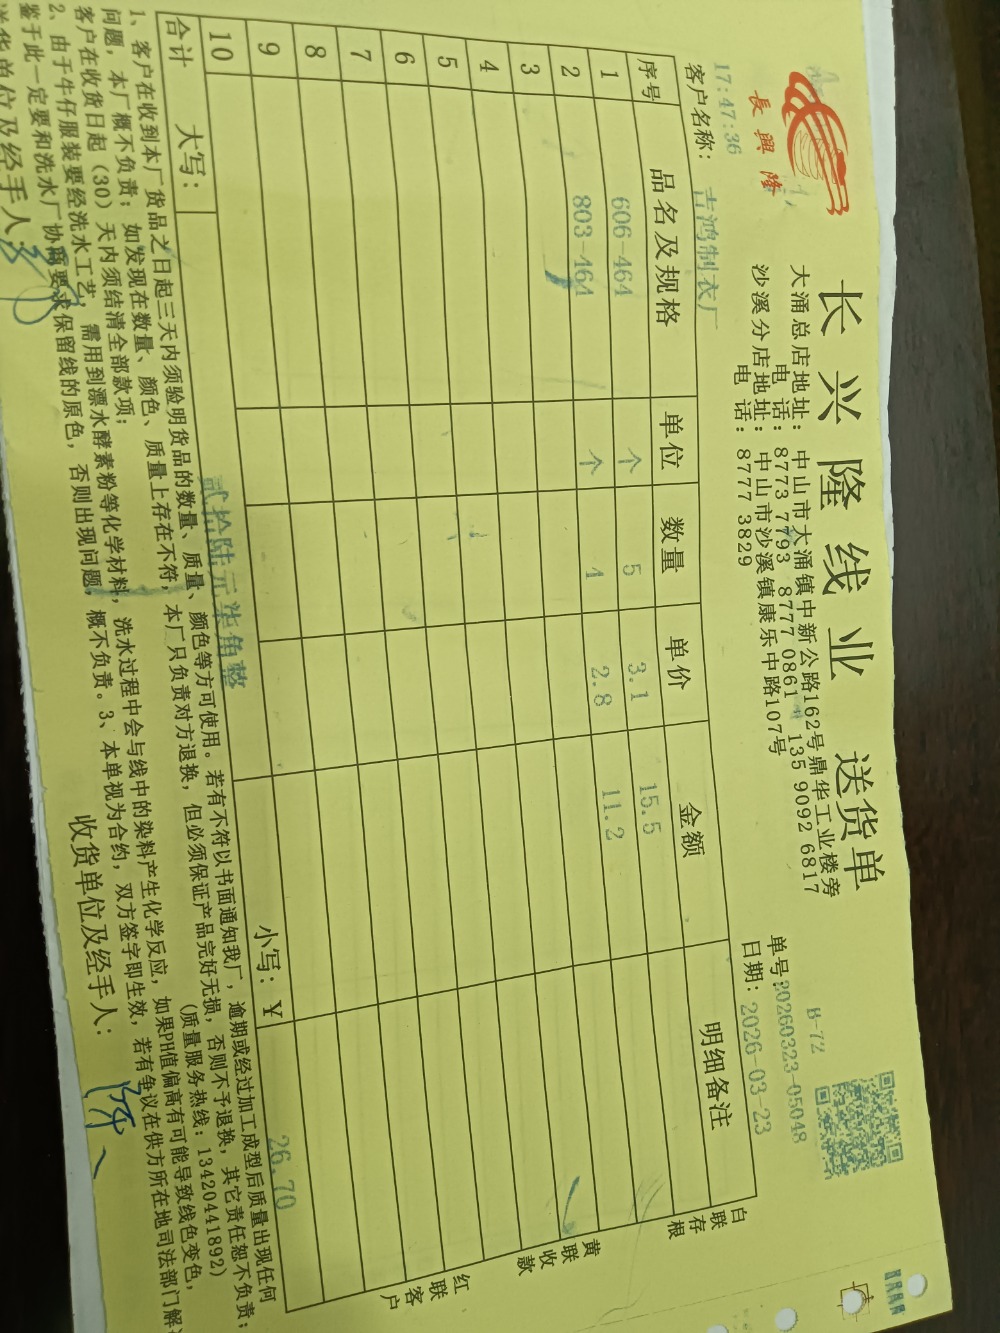 長興隆
长兴隆线业 送货单
大涌总店地址: 中山市大涌镇中新公路162号鼎华工业楼旁
电 话: 8773 7793 8777 0861 135 9092 6817
沙溪分店地址: 中山市沙溪镇康乐中路107号
电 话: 8777 3829
B-72
单号:20260323-05048
日期: 2026-03-23
17:47:36
客户名称: 吉鸿制衣厂
序号 品名及规格 单位 数量 单价 金额 明细备注
1 606-464 个 5 3.1 15.5
2 803-464 个 4 2.8 11.2
3
4
5
6
7
8
9
10
合计 大写: 贰拾陆元柒角整 小写: ¥ 26.70
白联存根
黄联收款
红联客户
1、客户在收到本厂货品之日起三天内须验明货品的数量、质量、颜色等方可使用。若有不符以书面通知我厂,逾期或经过加工成型后质量出现任何
问题,本厂概不负责;如发现在数量、颜色、质量上存在不符,本厂只负责对方退换,但必须保证产品完好无损,否则不予退换,其它责任恕不负责;
客户在收货日起(30)天内须结清全部款项; (质量服务热线:13420441892)
2、由于牛仔服装要经洗水工艺,需用到漂水酵素粉等化学材料,洗水过程中会与线中的染料产生化学反应,如果PH值偏高有可能导致线色变色,
鉴于此一定要和洗水厂协商要求保留线的原色,否则出现问题,概不负责。3、本单视为合约,双方签字即生效,若有争议在供方所在地司法部门解
送货单位及经手人: 收货单位及经手人: